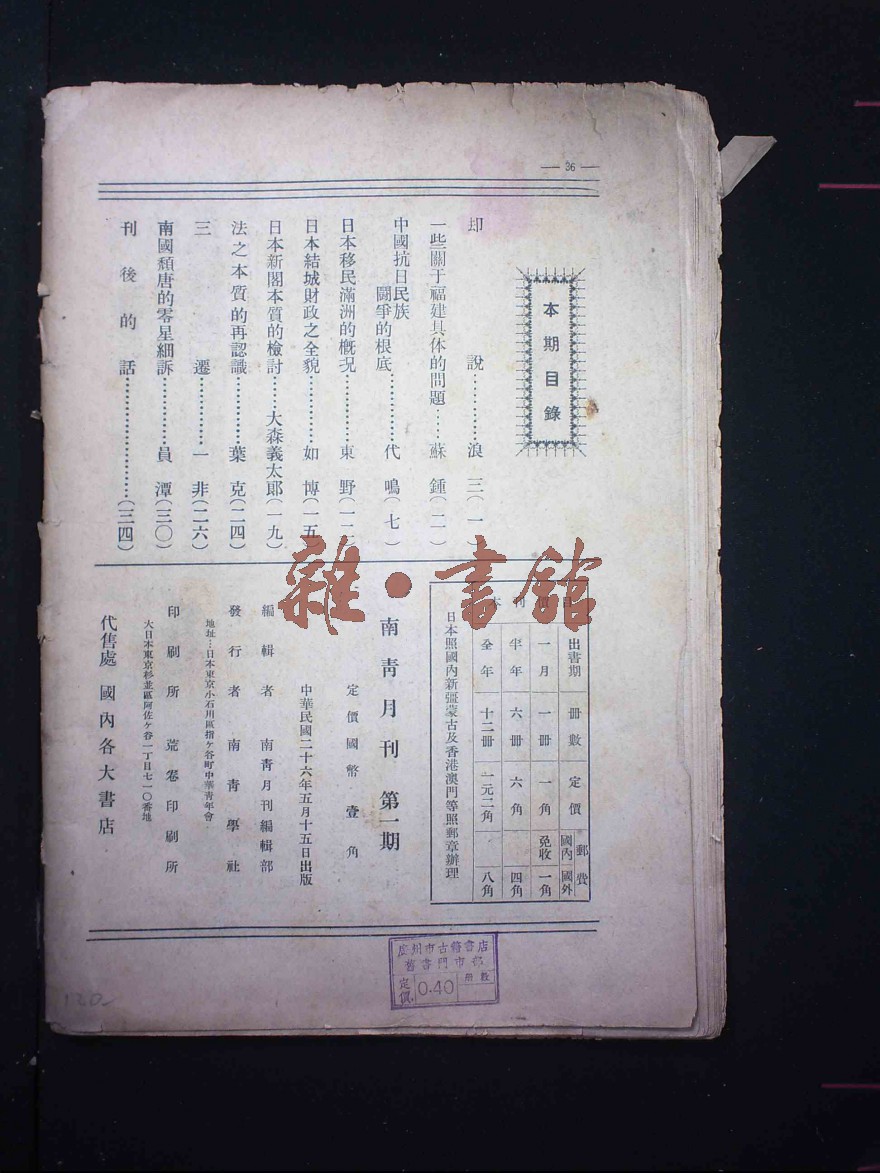 — 36 —
本期目錄
却說…………浪三(一)
一些關于福建具体的問題……蘇鍾(二)
中國抗日民族
鬪爭的根底…………代鳴(七)
日本移民滿洲的槪況…………東野(一二)
日本結城財政之全貌…………如博(一五)
日本新閣本質的檢討……大森義太郎(一九)
法之本質的再認識…………葉克(二四)
三遷…………一非(二六)
南國頹唐的零星細訴…………員潭(三〇)
刊後的話…………………(三四)
出書期 冊數 定價 郵費
國內 國外
一月 一冊 一角 免收 一角
半年 六冊 六角 四角
全年 十二冊 一元二角 八角
日本照國內新疆蒙古及香港澳門等照郵章辦理
南靑月刊 第一期
定價國幣壹角
中華民國二十六年五月十五日出版
編輯者 南靑月刊編輯部
發行者 南靑學社
地址…日本東京小石川區指ケ谷町中華靑年會
印刷所 荒卷印刷所
大日本東京杉並區阿佐ケ谷一丁目七一〇番地
代售處 國內各大書店
雜·書館
廣州市古籍書店
舊書門市部
定價 0.40 冊數
120